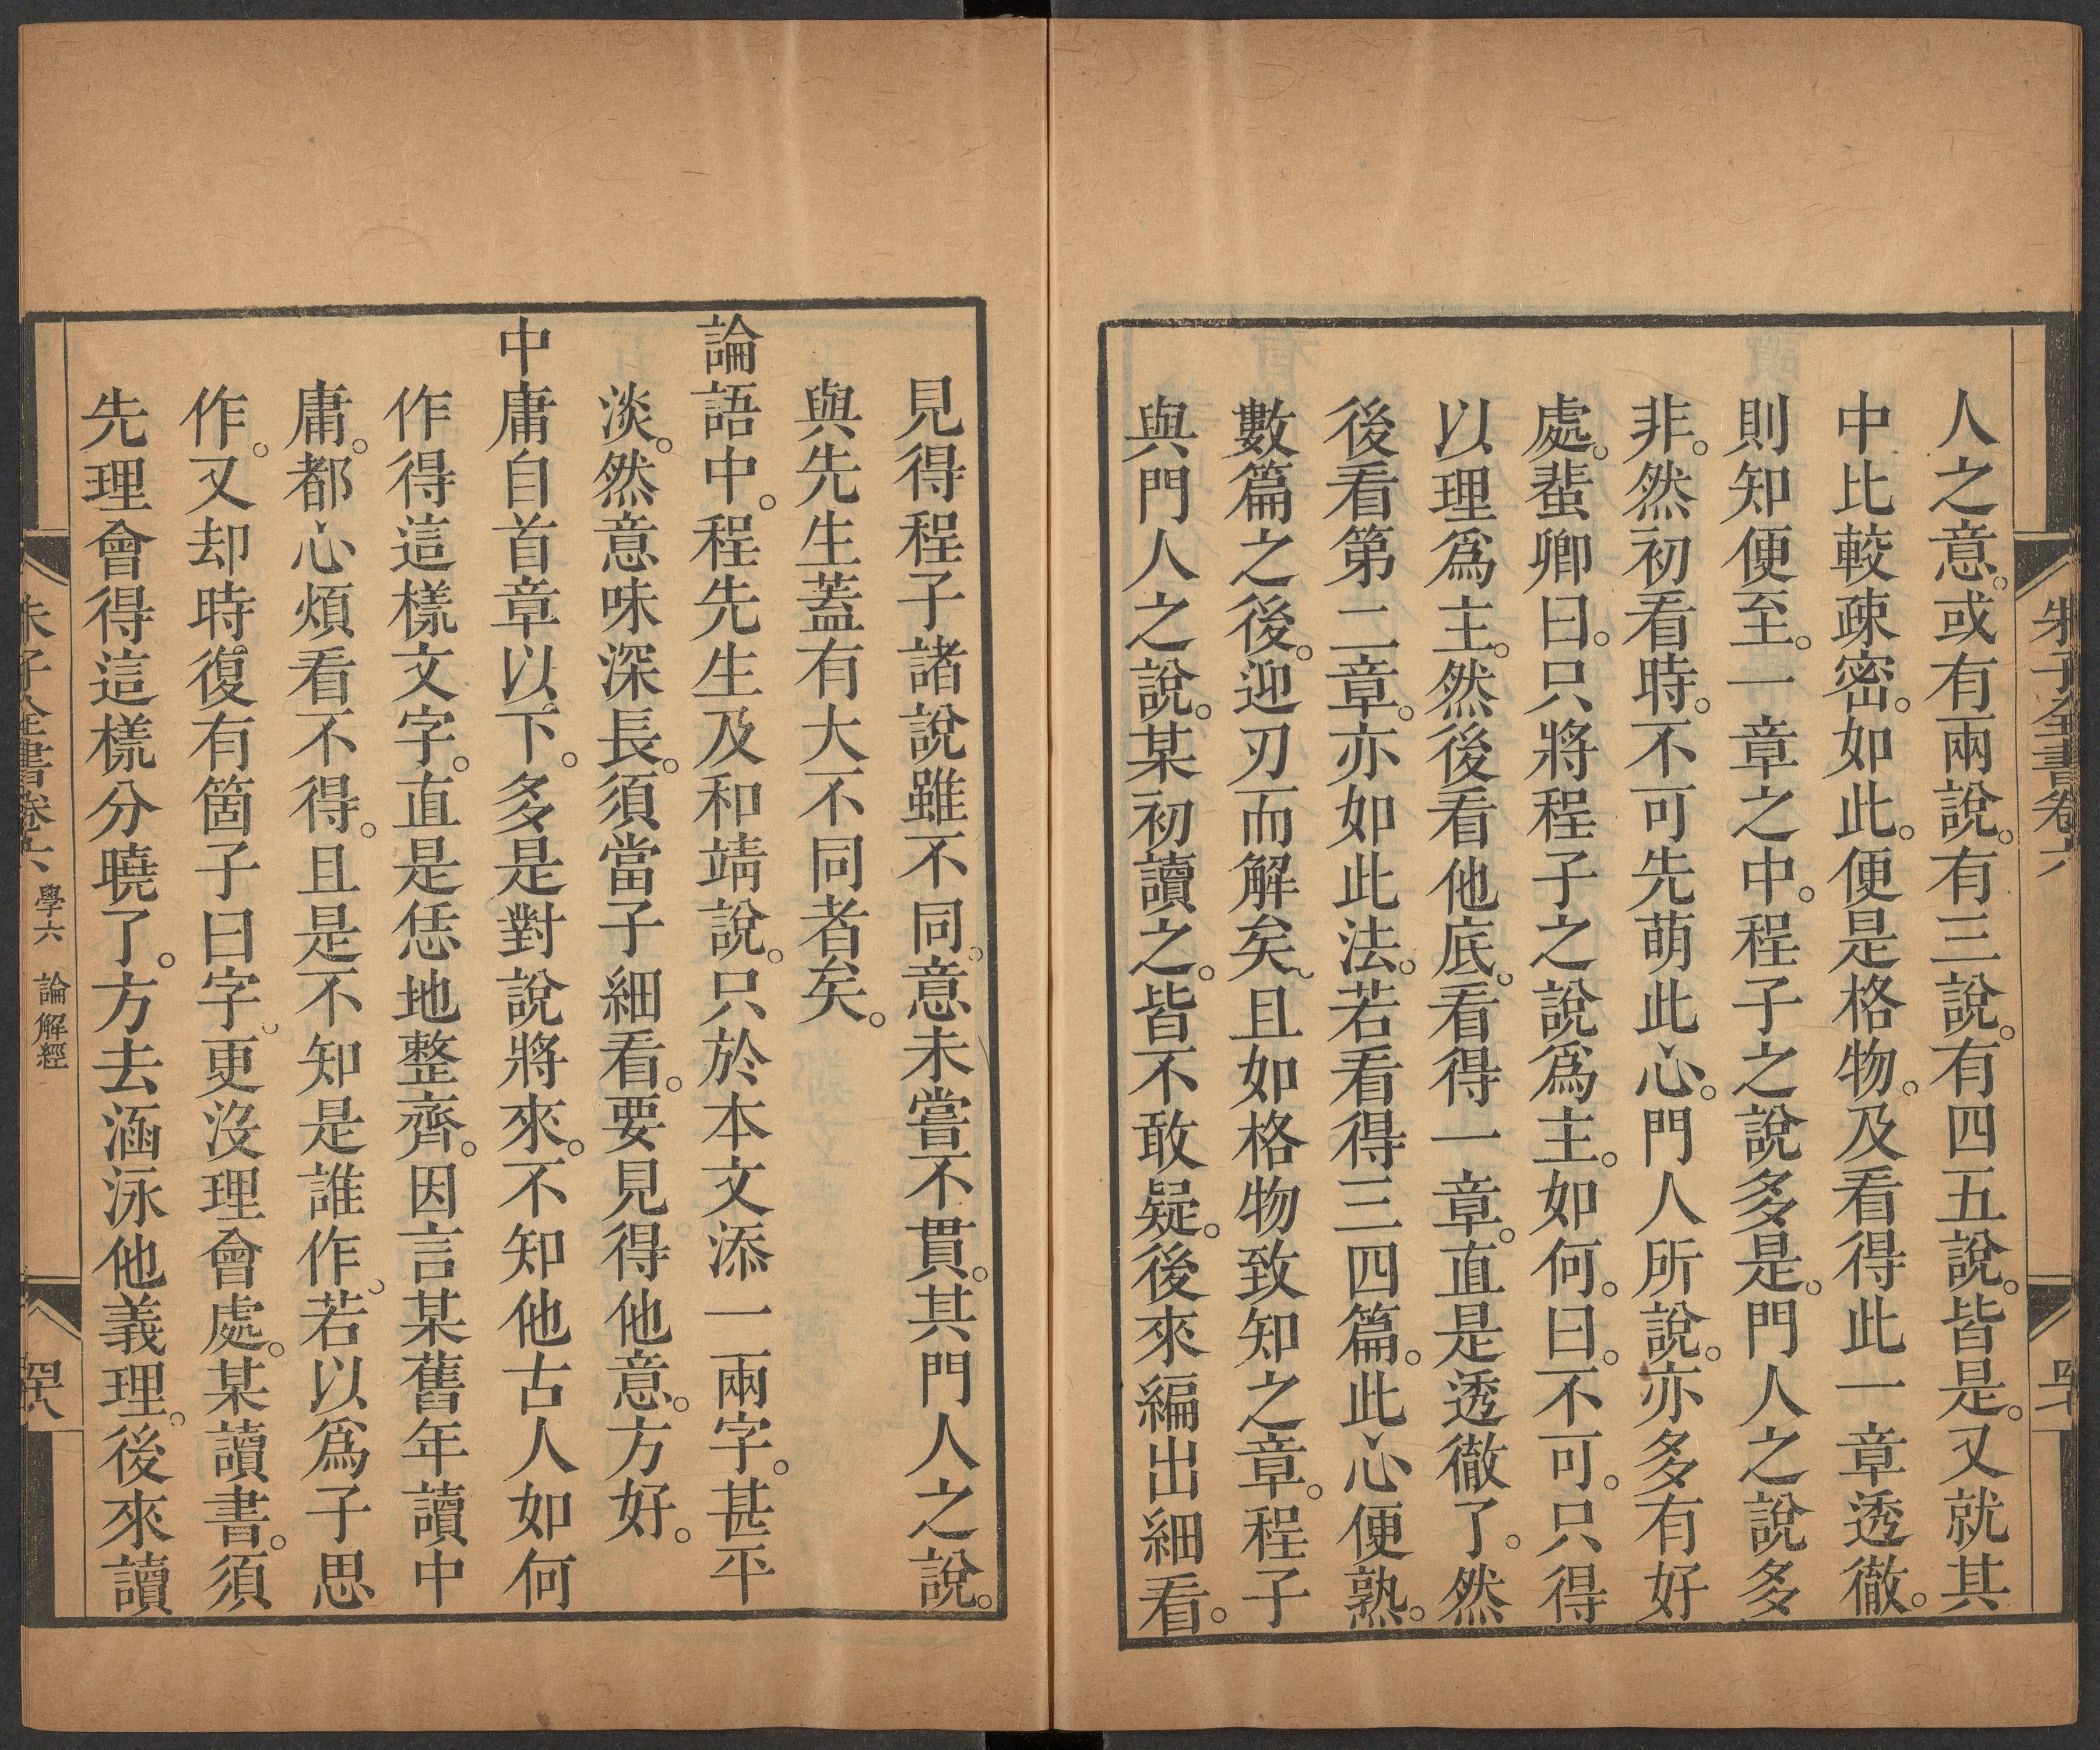 朱子全書卷六
人之意。或有兩說。有三說。有四五說。皆是。又就其
中比較疎密。如此。便是格物。及看得此一章透徹。
則知便至。一章之中。程子之說多是。門人之說多
非。然初看時。不可先萌此心。門人所說。亦多有好
處。蜚卿曰。只將程子之說爲主。如何。曰。不可。只得
以理爲主。然後看他底。看得一章。直是透徹了。然
後看第二章。亦如此法。若看得三四篇。此心便熟。
數篇之後。迎刃而解矣。且如格物致知之章。程子
與門人之說。某初讀之。皆不敢疑。後來編出細看。
見得程子諸說雖不同。意未嘗不貫。其門人之說。
與先生蓋有大不同者矣。
論語中。程先生及和靖說。只於本文添一兩字。甚平
淡。然意味深長。須當子細看。要見得他意。方好。
中庸自首章以下。多是對說將來。不知他古人如何
作得這樣文字。直是恁地整齊。因言某舊年讀中
庸。都心煩看不得。且是不知是誰作。若以爲子思
作。又却時復有箇子曰字。更沒理會處。某讀書。須
先理會得這樣分曉了。方去涵泳他義理。後來讀
朱子全書卷六 學六 論解經